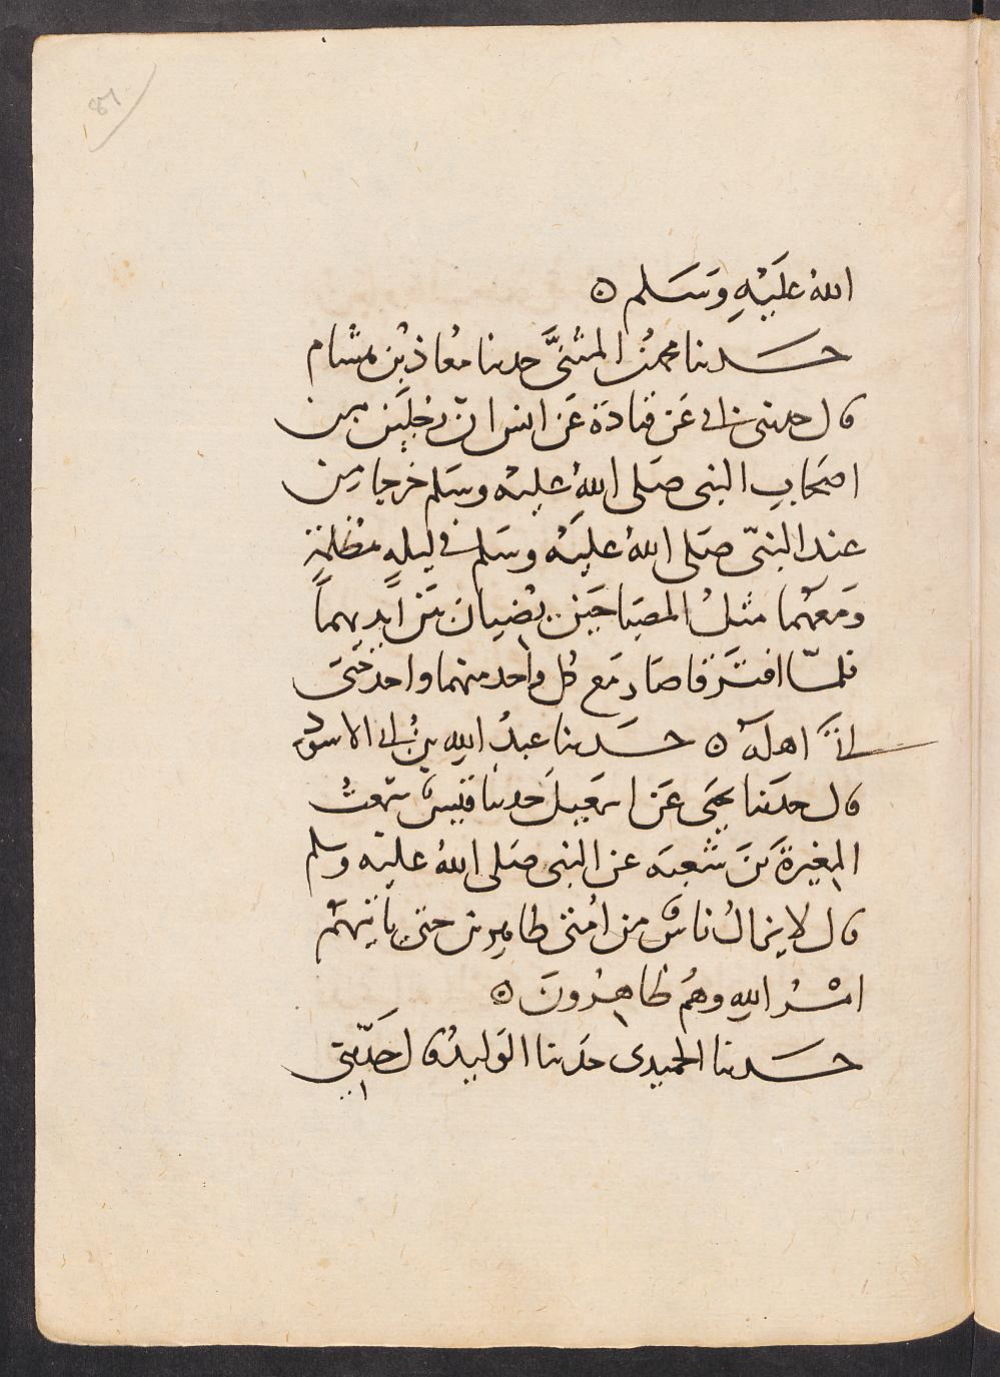 الله عَلَيْهِ وَسَلم ه
حَسدثنا محمد بن المثنَّى حدثنا معُاذ بْن هشام
قال حدثنى ابى عَن قتادة عَن انس انّ رَجُلَين مِن
اصْحابِ النبى صَلى اللهُ عليه وسَلم خرجا مِن
عند النبىّ صَلى اللهُ عليه وسَلم فى ليلةٍ مُظلمةٍ
وَمَعَهُما مثلُ المصْبَاحَيْن يُضيان بَيْن اَيْديهما
فلمّا افتَرَقا صَارَ مَع كُل واحد منهما واحد حَتى
اَتَى اهلَهُ ه حَسدثنا عبدُ اللهِ بنُ ابى الاسود
قال حدَثنا يحيَى عَن اسمَعيلَ حدثنا قيسٌ سَمعتُ
المغيرةَ بنَ شُعبَه عن النبى صَلى اللهُ عليْه وَسلم
قال لا يزالُ ناسٌ من اُمتى ظاهرين حتى ياتيَهُم
امْرُ اللهِ وهُم ظاهِرُونَ ه
حَسدثنا الحميدى حَدثنا الوَليدُ قال حَدّثنِى